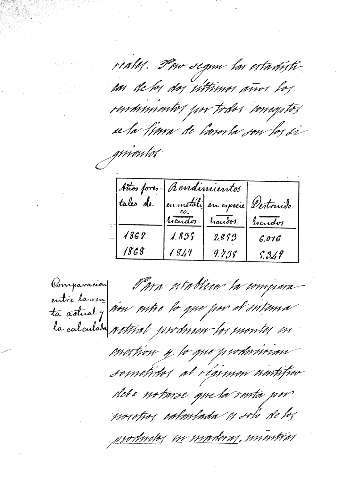 riales. Pero segun las estadisti-
cas de los dos últimos años los
rendimientos por todos conceptos
de la tierra de Cazorla son los si-
guientes
Años fores- Rendimientos
tales de. en metáli- en especie Destruido
co.
Escudos Escudos Escudos
1867 1.835 2.893 6.016
1868 1.847 9.738 5.349
Comparacion
entre la ren-
ta actual y
la calculada
Para establecer la compara-
cion entre lo que por el sistema
actual producen los montes en
cuestion y lo que producirian
sometidos al régimen científico
debe notarse que la renta por
nosotros calculada es solo de los
productos en maderas, mientras